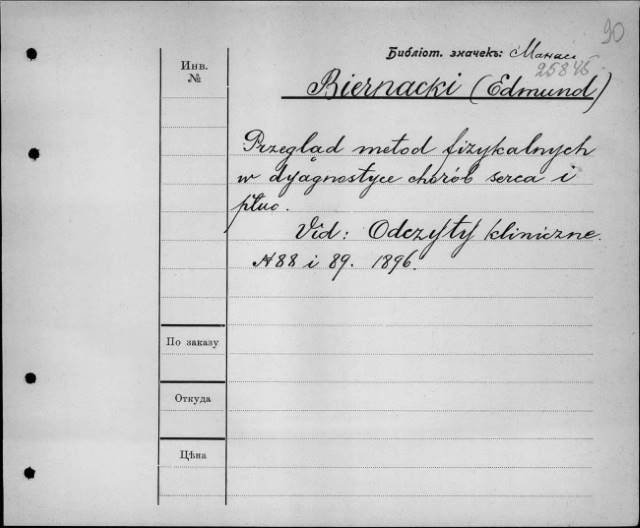 90
Библіот. значекъ: Манас
25845
Инв.
№
Biernacki (Edmund)
Przegląd metod fizykalnych
w dyagnostyce chorób serca i
płuc.
Vid: Odczyty kliniczne.
N 88 i 89. 1896.
По заказу
Откуда
Цѣна